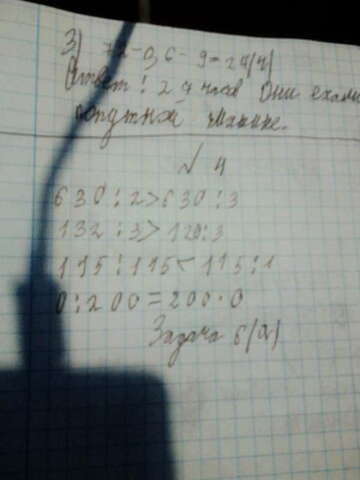 3) 72-36-9=27(ч)
Ответ: 27 часов они ехали
попутной машине.
№ 4
630:2>630:3
132:3>120:3
115:115<115:1
0:200=200·0
Задача 6(а)